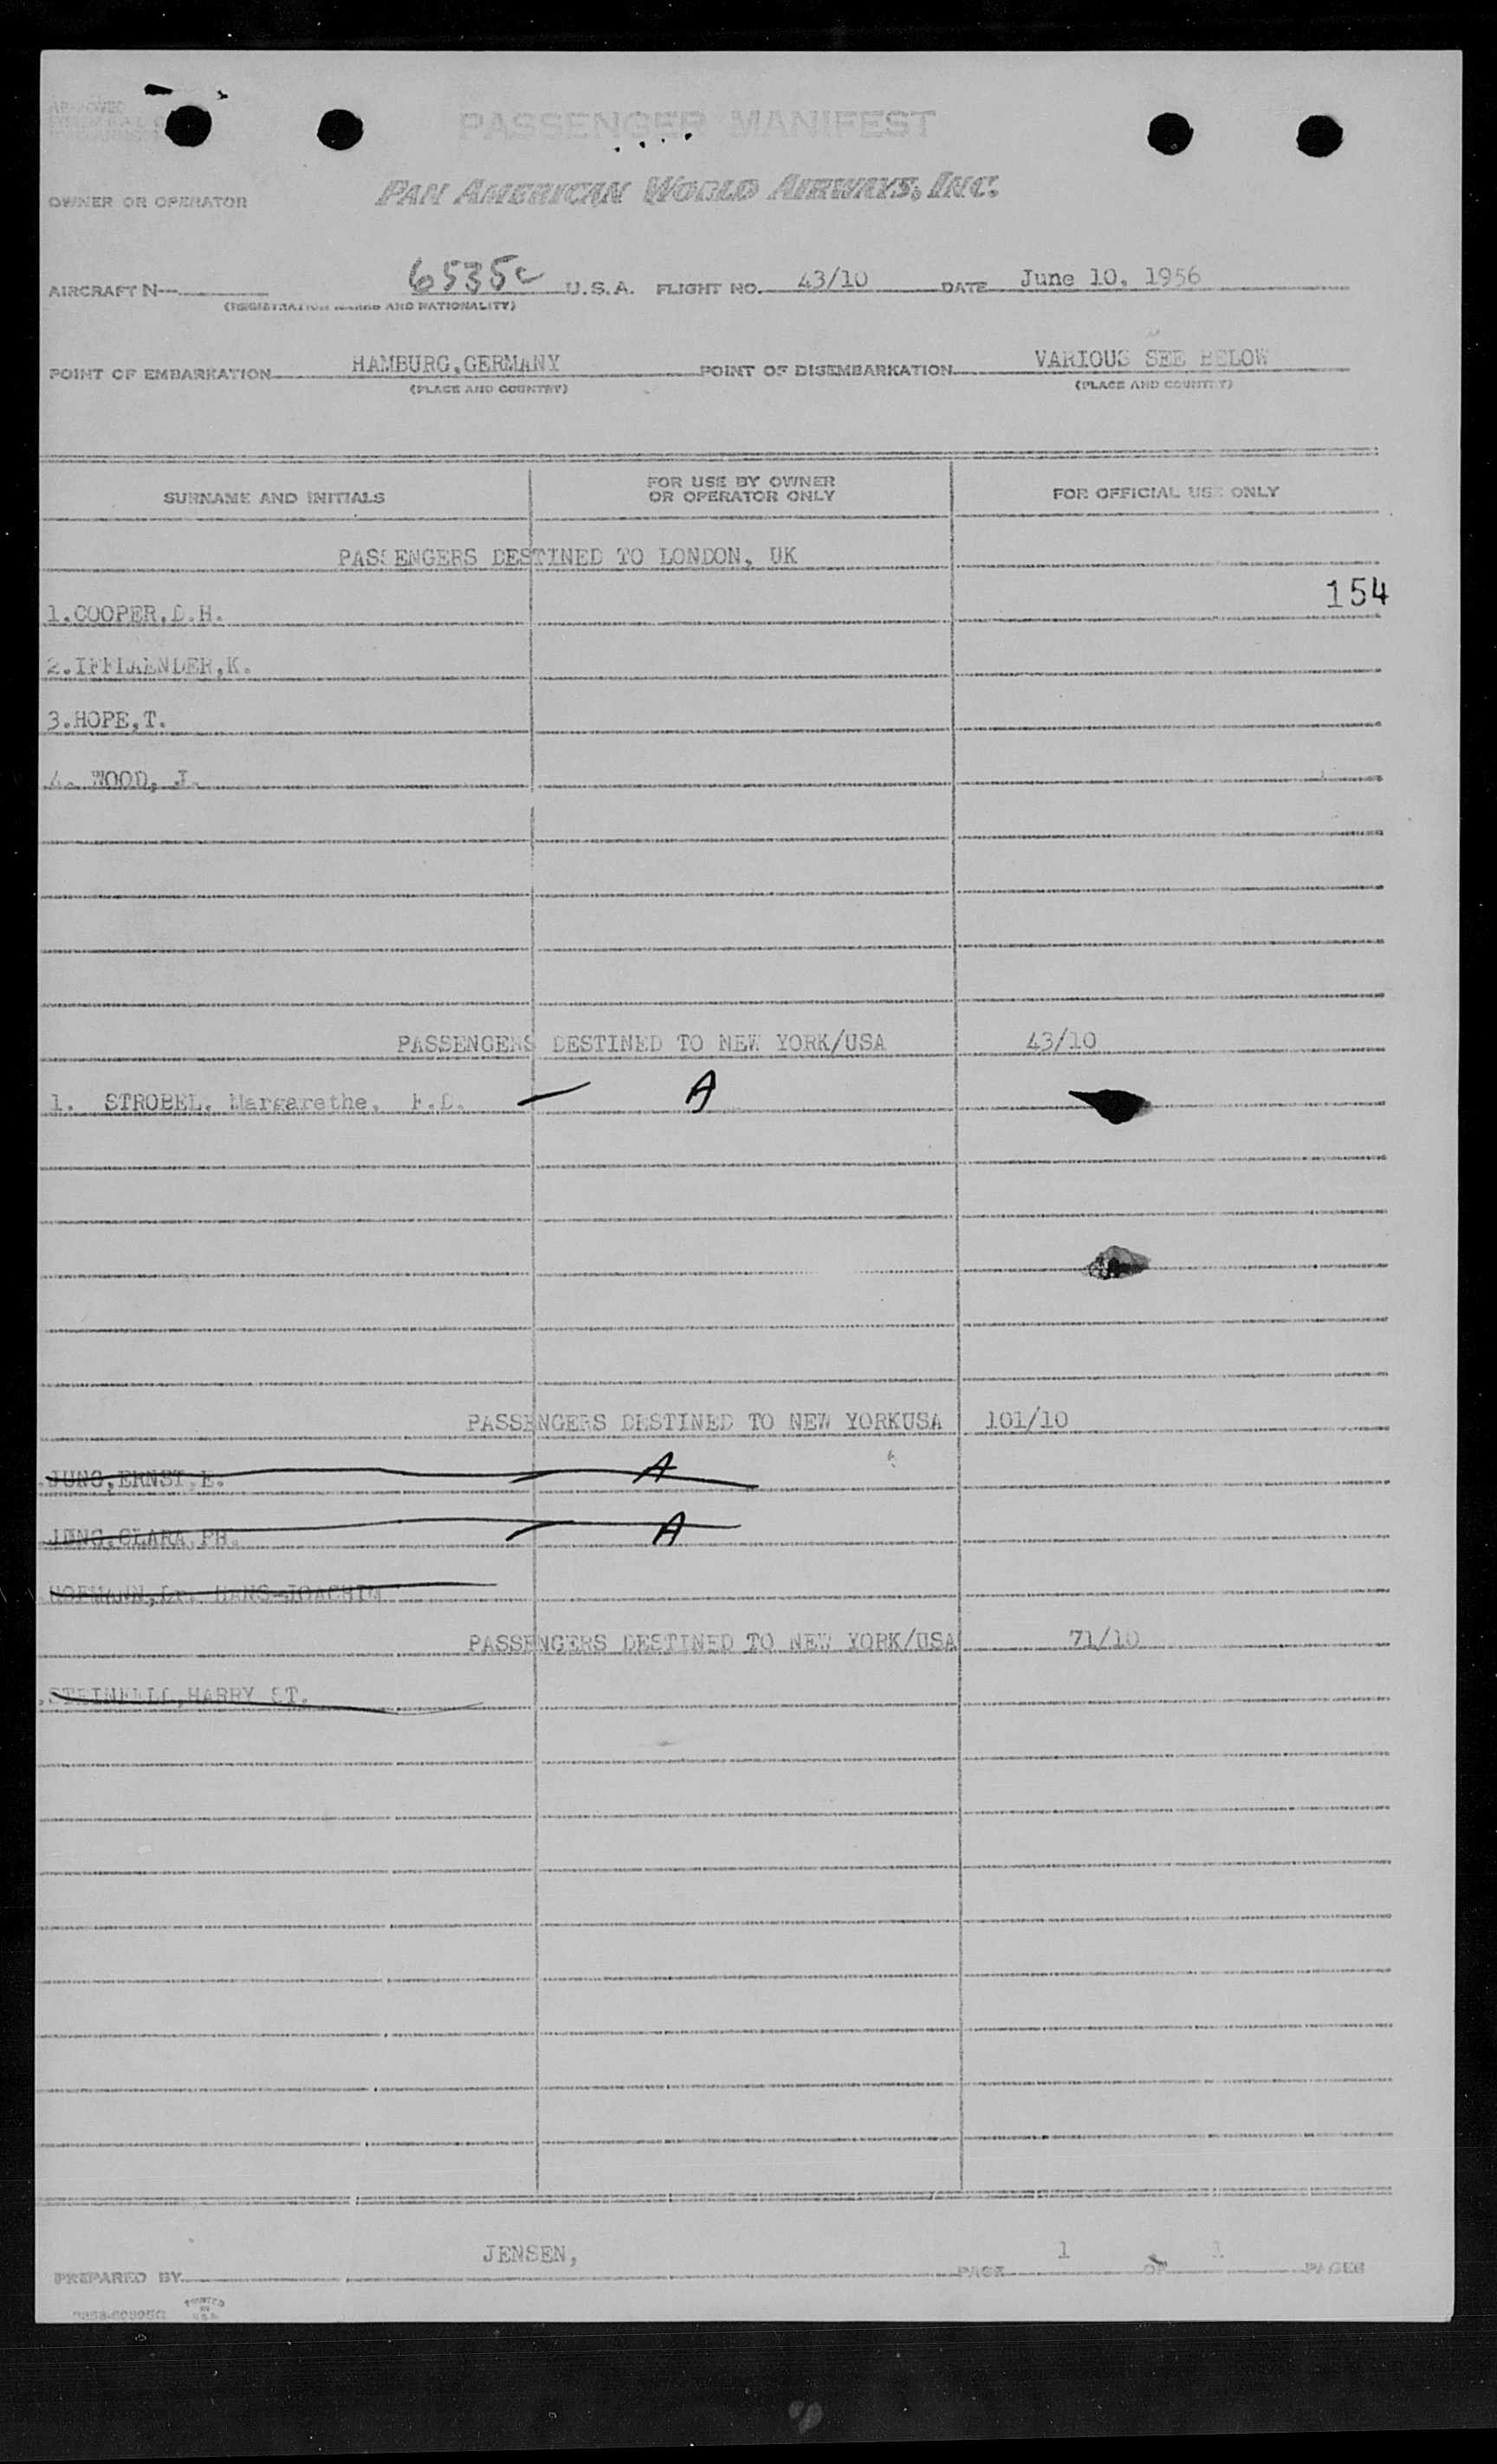 PASSENGER MANIFEST
OWNER OR OPERATOR PAN AMERICAN WORLD AIRWAYS, INC.
AIRCRAFT N- 6535c U.S.A. FLIGHT NO. 43/10 DATE June 10, 1956
(REGISTRATION MARKS AND NATIONALITY)
POINT OF EMBARKATION HAMBURG,GERMANY POINT OF DISEMBARKATION VARIOUS SEE BELOW
(PLACE AND COUNTRY) (PLACE AND COUNTRY)
SURNAME AND INITIALS FOR USE BY OWNER OR OPERATOR ONLY FOR OFFICIAL USE ONLY
PASSENGERS DESTINED TO LONDON, UK
154
1.COOPER,D.H.
2.IFFLAENDER,K.
3.HOPE,T.
4. WOOD, J.
PASSENGERS DESTINED TO NEW YORK/USA 43/10
1. STROBEL, Margarethe, F.D. A
PASSENGERS DESTINED TO NEW YORKUSA 101/10
JUNG,ERNST,E. A
JUNG,CLARA,PH. A
HOFMANN,Dr. HANS-JOACHIM
PASSENGERS DESTINED TO NEW YORK/USA 71/10
HARRY ST.
JENSEN,
PREPARED BY PAGE 1 OF 1 PAGES
PRINTED IN U.S.A.